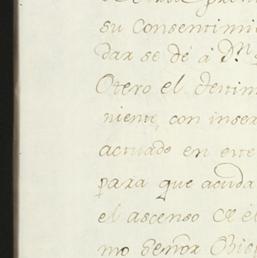 su Consentimi
dar se dé á D.ⁿ
Otero el Testim
niente, con inser
actuado en este
para que acuda
el ascenso de él
mo Señor Obis